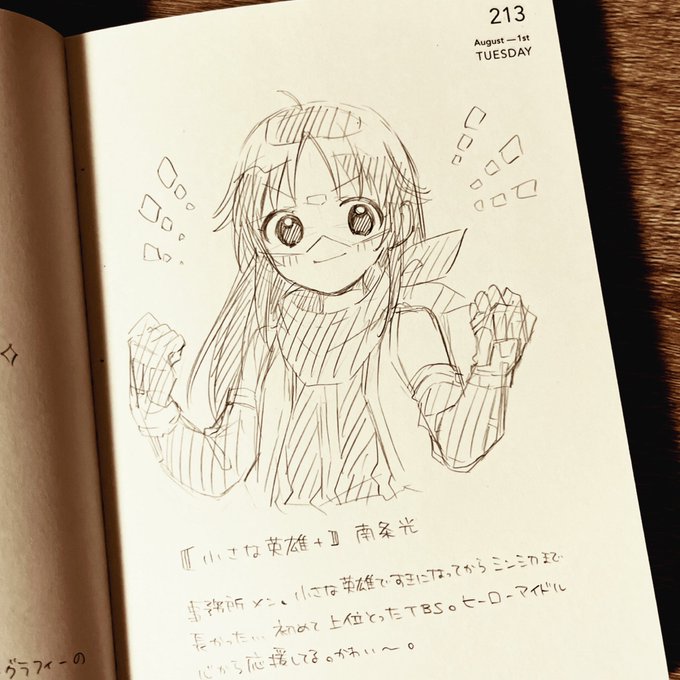 213
August — 1st
TUESDAY
【小さな英雄+】 南条光
事務所メン、小さな英雄ですきになってからミンシカまで
長かった… 初めて上位とったTBS。ヒーローアイドル
心から応援してる。かわい〜。
グラフィーの